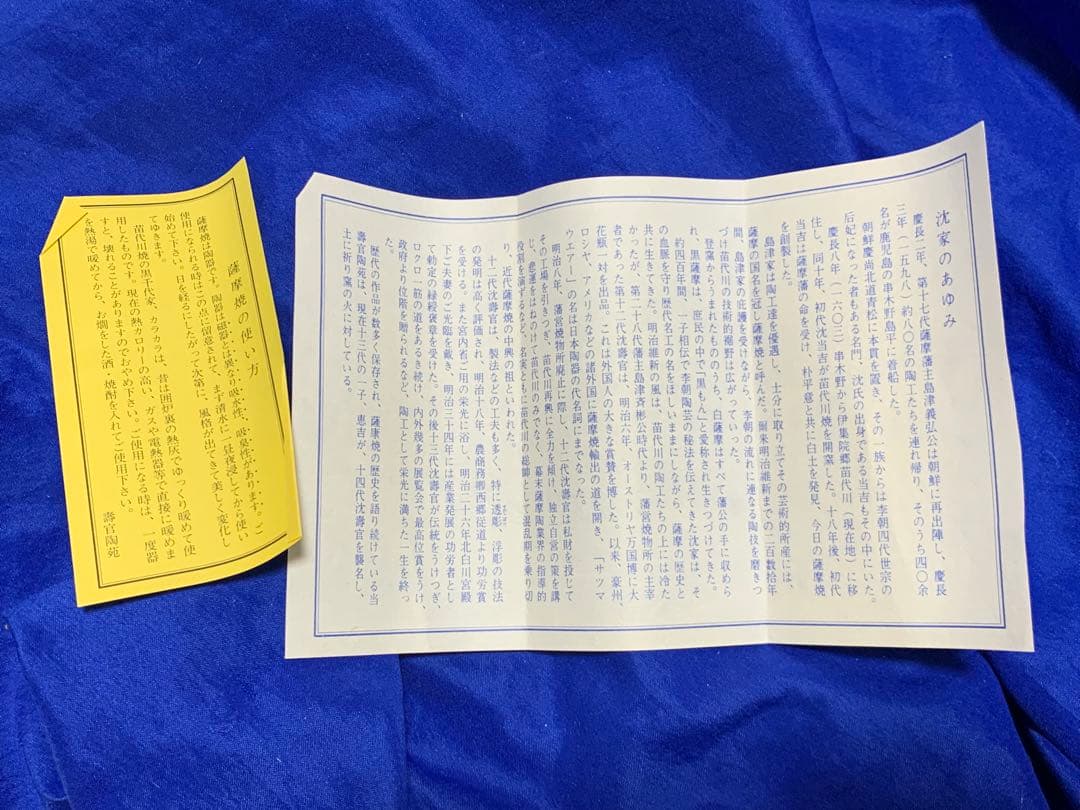 沈家のあゆみ
慶長二年、第十七代薩摩藩主島津義弘公は朝鮮に再出陣し、慶長
三年(一五九八)約八〇名の陶工たちを連れ帰り、そのうち四〇余
名が鹿児島の串木野島平に着船した。
朝鮮慶尚北道青松に本貫を置き、その一族からは李朝四代世宗の
后妃になった者もある名門、沈氏の出身である当吉もその中にいた。
慶長八年(一六〇三)串木野から伊集院郷苗代川(現在地)に移
住し、同十年、初代沈当吉が苗代川焼を開窯した。十八年後、初代
当吉は薩摩藩の命を受け、朴平意と共に白土を発見、今日の薩摩焼
を創製した。
島津家は陶工達を優遇し、士分に取り立てその芸術的所産には、
薩摩の国名を冠し薩摩焼と呼んだ。爾来明治維新までの二百数拾年
間、島津家の庇護を受けながら、李朝の流れに連なる陶技を磨きつ
づけ苗代川の技術的裾野は広がっていった。
登窯からうまれたもののうち、白薩摩はすべて藩公の手に収めら
れ、黒薩摩は、庶民の中で"黒もん"と愛称され生きつづけてきた。
約四百年間、一子相伝で李朝陶芸の秘法を伝えてきた沈家は、そ
の血脈を守り歴代名工の名をほしいままにしながら、薩摩の歴史と
共に生きてきた。明治維新の風は、苗代川の陶工たちの上には冷た
かったが、第二十八代藩主島津斉彬公時代より、藩営焼物所の主宰
者であった第十二代沈壽官は、明治六年、オーストリヤ万国博に大
花瓶一対を出品。これは外国人の大きな賞賛を博した。以来、豪州、
ロシヤ、アメリカなどの諸外国に薩摩焼輸出の道を開き、「サツマ
ウエアー」の名は日本陶器の代名詞にまでなった。
明治八年、藩営焼物所廃止に際し、十二代沈壽官は私財を投じて
その工場を引きつぎ、苗代川再興に全力を傾け、独立自営の策を講
じ、悲運をはねのけて苗代川のみでなく、幕末薩摩陶業界の指導的
役割を演ずるなど、名実ともに苗代川の総帥として混乱期を乗り切
り、近代薩摩焼の中興の祖といわれた。
十二代沈壽官は、製法などの工夫も多く、特に透彫、浮彫の技法
の発明は高く評価され、明治十八年、農商務卿西郷従道より功労賞
を受ける。また宮内省ご用の栄光に浴し、明治二十六年北白川宮殿
下ご夫妻のご光臨を戴き、明治三十四年には産業発展の功労者とし
て勅定の緑綬褒章を受けた。その後十三代沈壽官が伝統をうけつぎ、
ロクロ一筋の道をあるき続け、内外幾多の展覧会で最高位賞をうけ、
政府より位階を贈られるなど、陶工として栄光に満ちた一生を終っ
た。
歴代の作品が数多く保存され、薩摩焼の歴史を語り続けている当
壽官陶苑は、現在十三代の一子、恵吉が、十四代沈壽官を襲名し、
土に祈り窯の火に対している。
薩摩焼の使い方
薩摩焼は陶器です。陶器は磁器とは異なり吸水性、吸臭性があります。ご
使用になられる時はこの点に留意されて、まず清水に一昼夜浸してから使い
始めて下さい。日を経るにしたがって次第に、風格が出てきて美しく変化し
てゆきます。
苗代川焼の黒千代家、カラカラは、昔は囲炉裏の熱灰でゆっくり暖めて使
用したものです。現在の熱カロリーの高い、ガスや電熱器等で直接に暖めま
すと、壊れることがありますのでおやめ下さい。ご使用になる時は、一度器
を熱湯で暖めてから、お燗をした酒・焼酎を入れてご使用下さい。
壽官陶苑